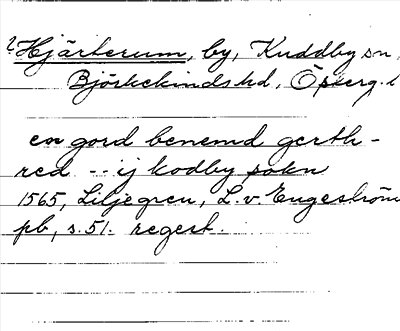 ? Hjärterum, by, Kuddby sn,
Björkekinds hd, Österg. l
en gord benemd gerth-
red -- ij kodby sokn
1565, Liljegren, L. v. Engeström
pb, s. 51. regest.